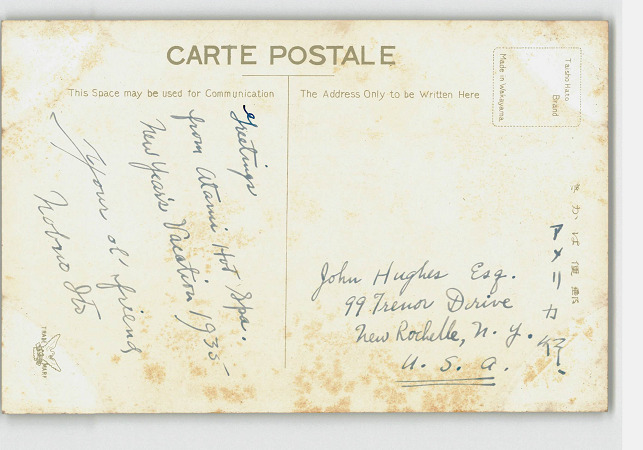 CARTE POSTALE
This Space may be used for Communication
The Address Only to be Written Here
Taisho Hato
Brand
Made in Wakayama
Greetings
from Atami Hot Spa.
New Year's Vacation 1935-
Your ol' friend
Nobuo Ito
John Hughes Esq.
99 Trenor Derive
New Rochelle, N. Y.
U. S. A.
きかは便郵
アメリカ行
TRADE MARK